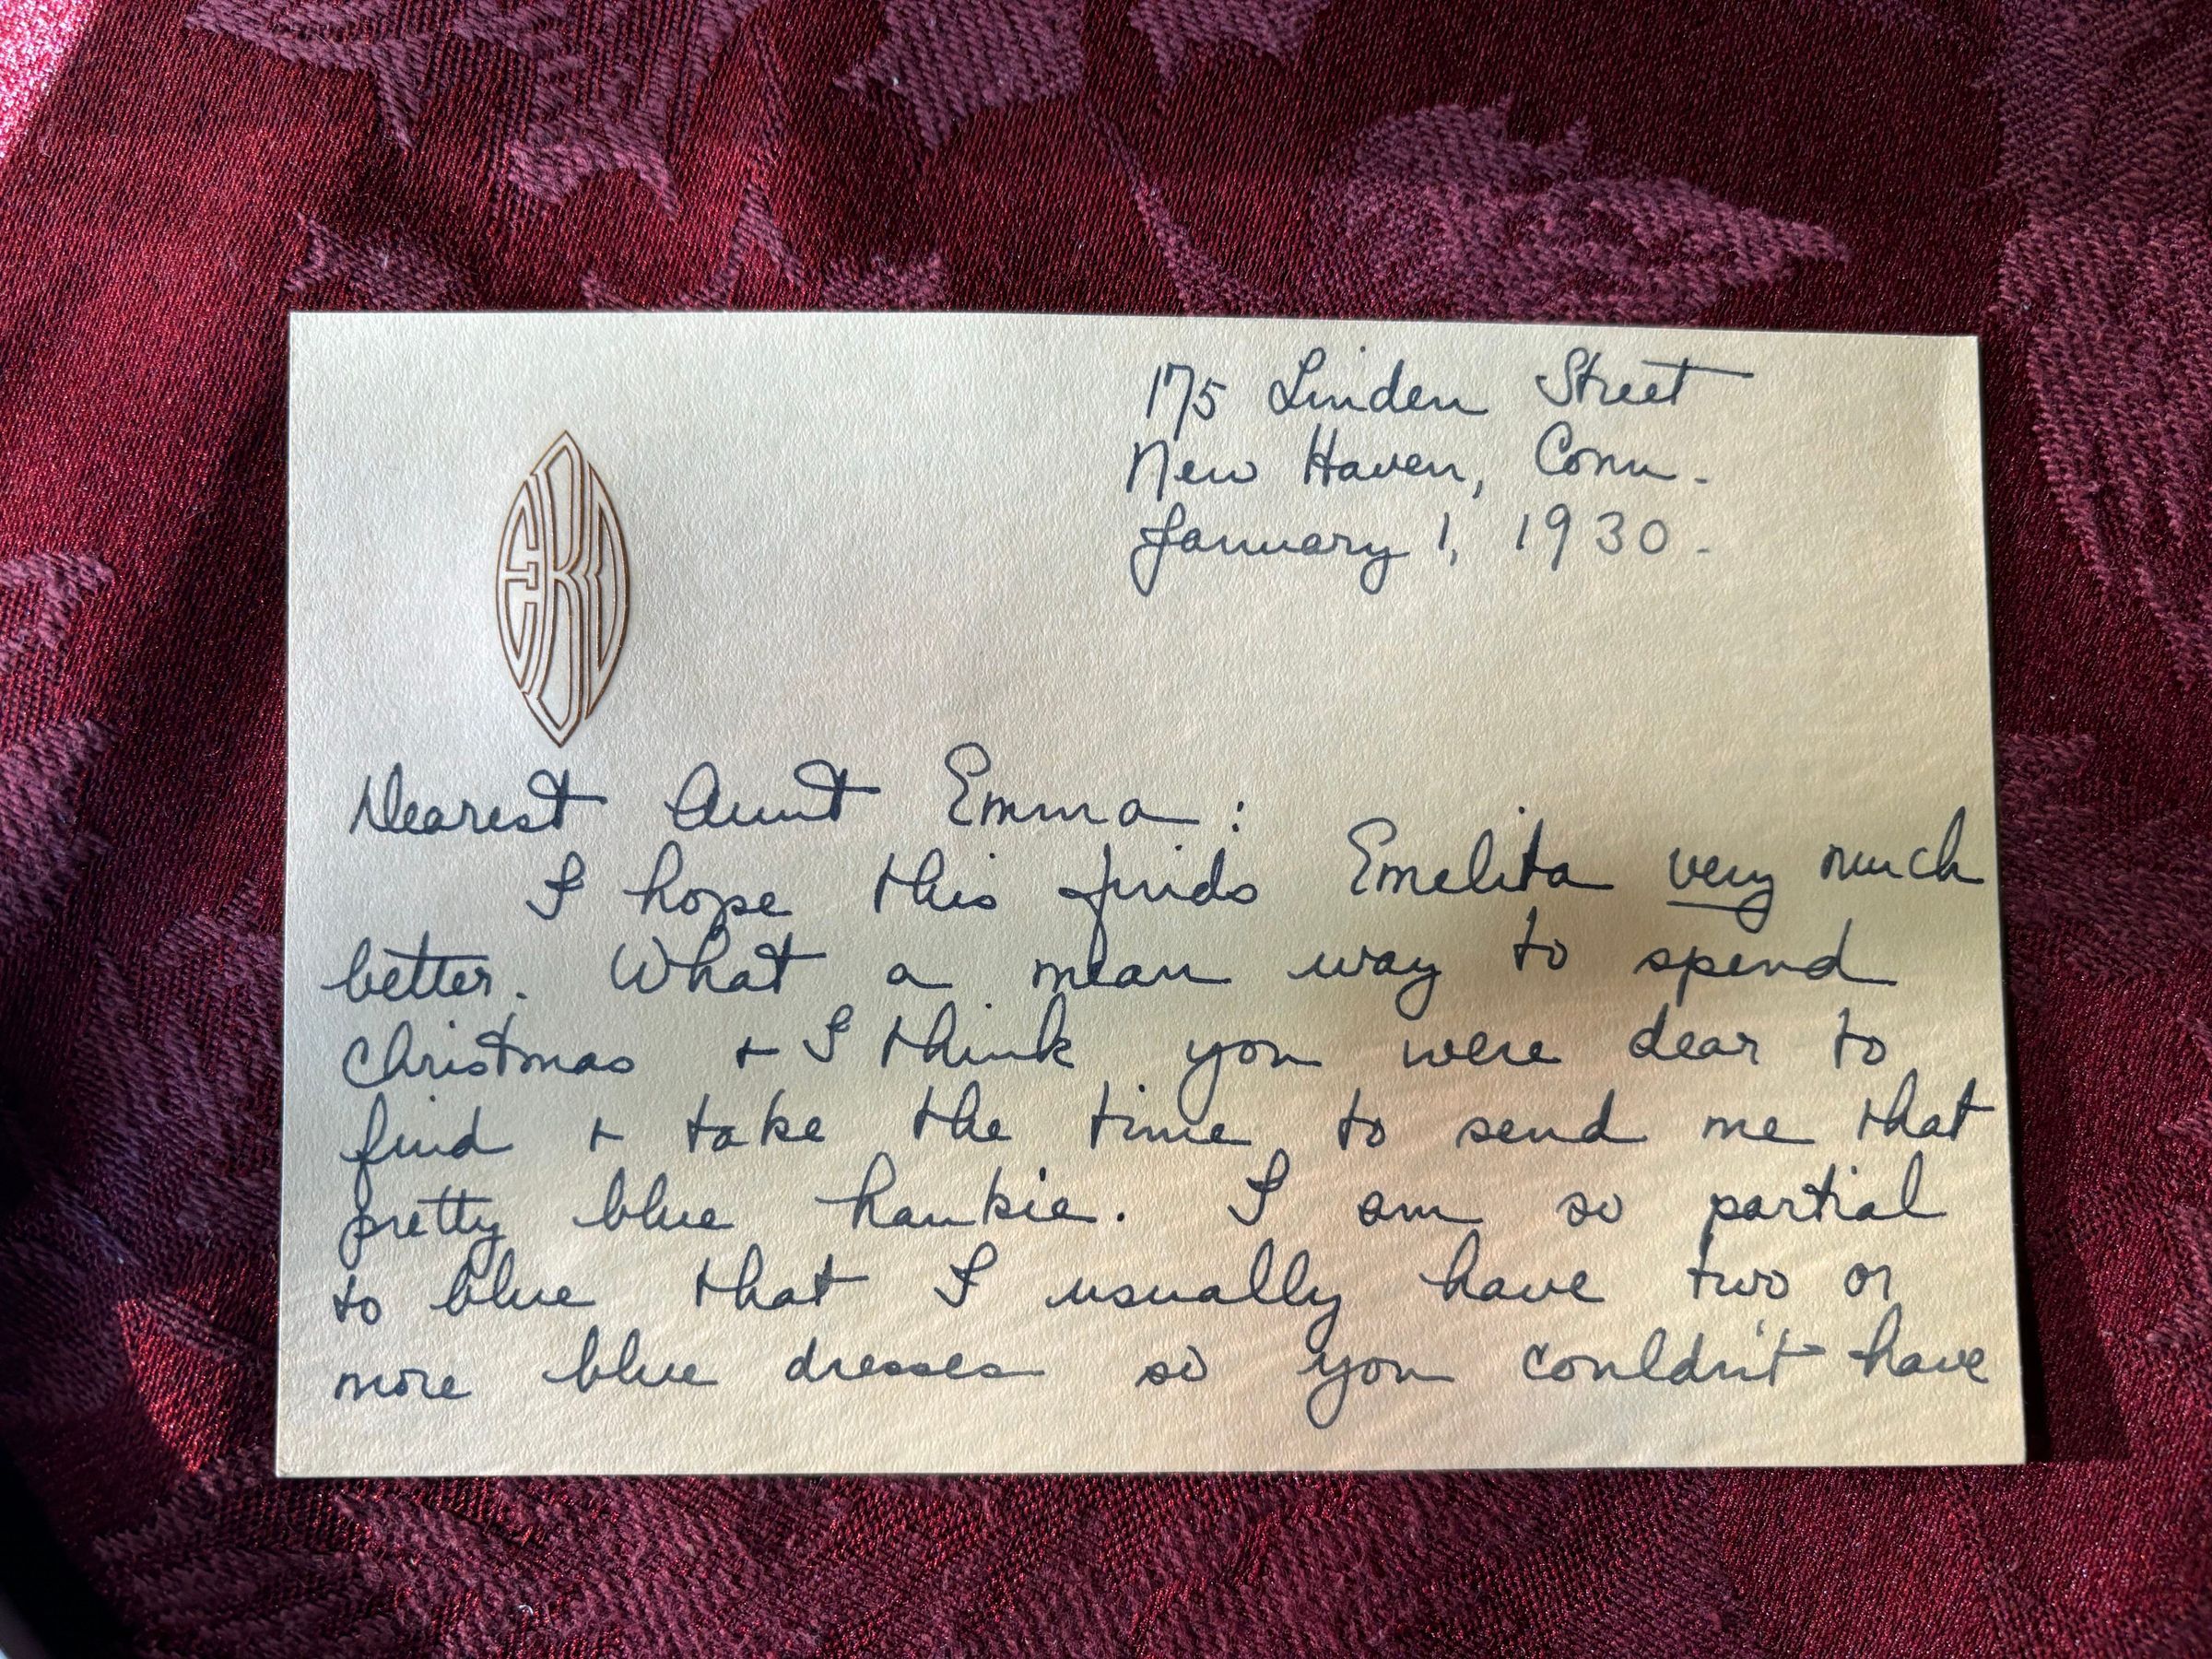 175 Linden Street
New Haven, Conn.
January 1, 1930.
EKD
Dearest Aunt Emma:
I hope this finds Emelita very much
better. What a mean way to spend
Christmas + I think you were dear to
find + take the time to send me that
pretty blue hankie. I am so partial
to blue that I usually have two or
more blue dresses so you couldn't have